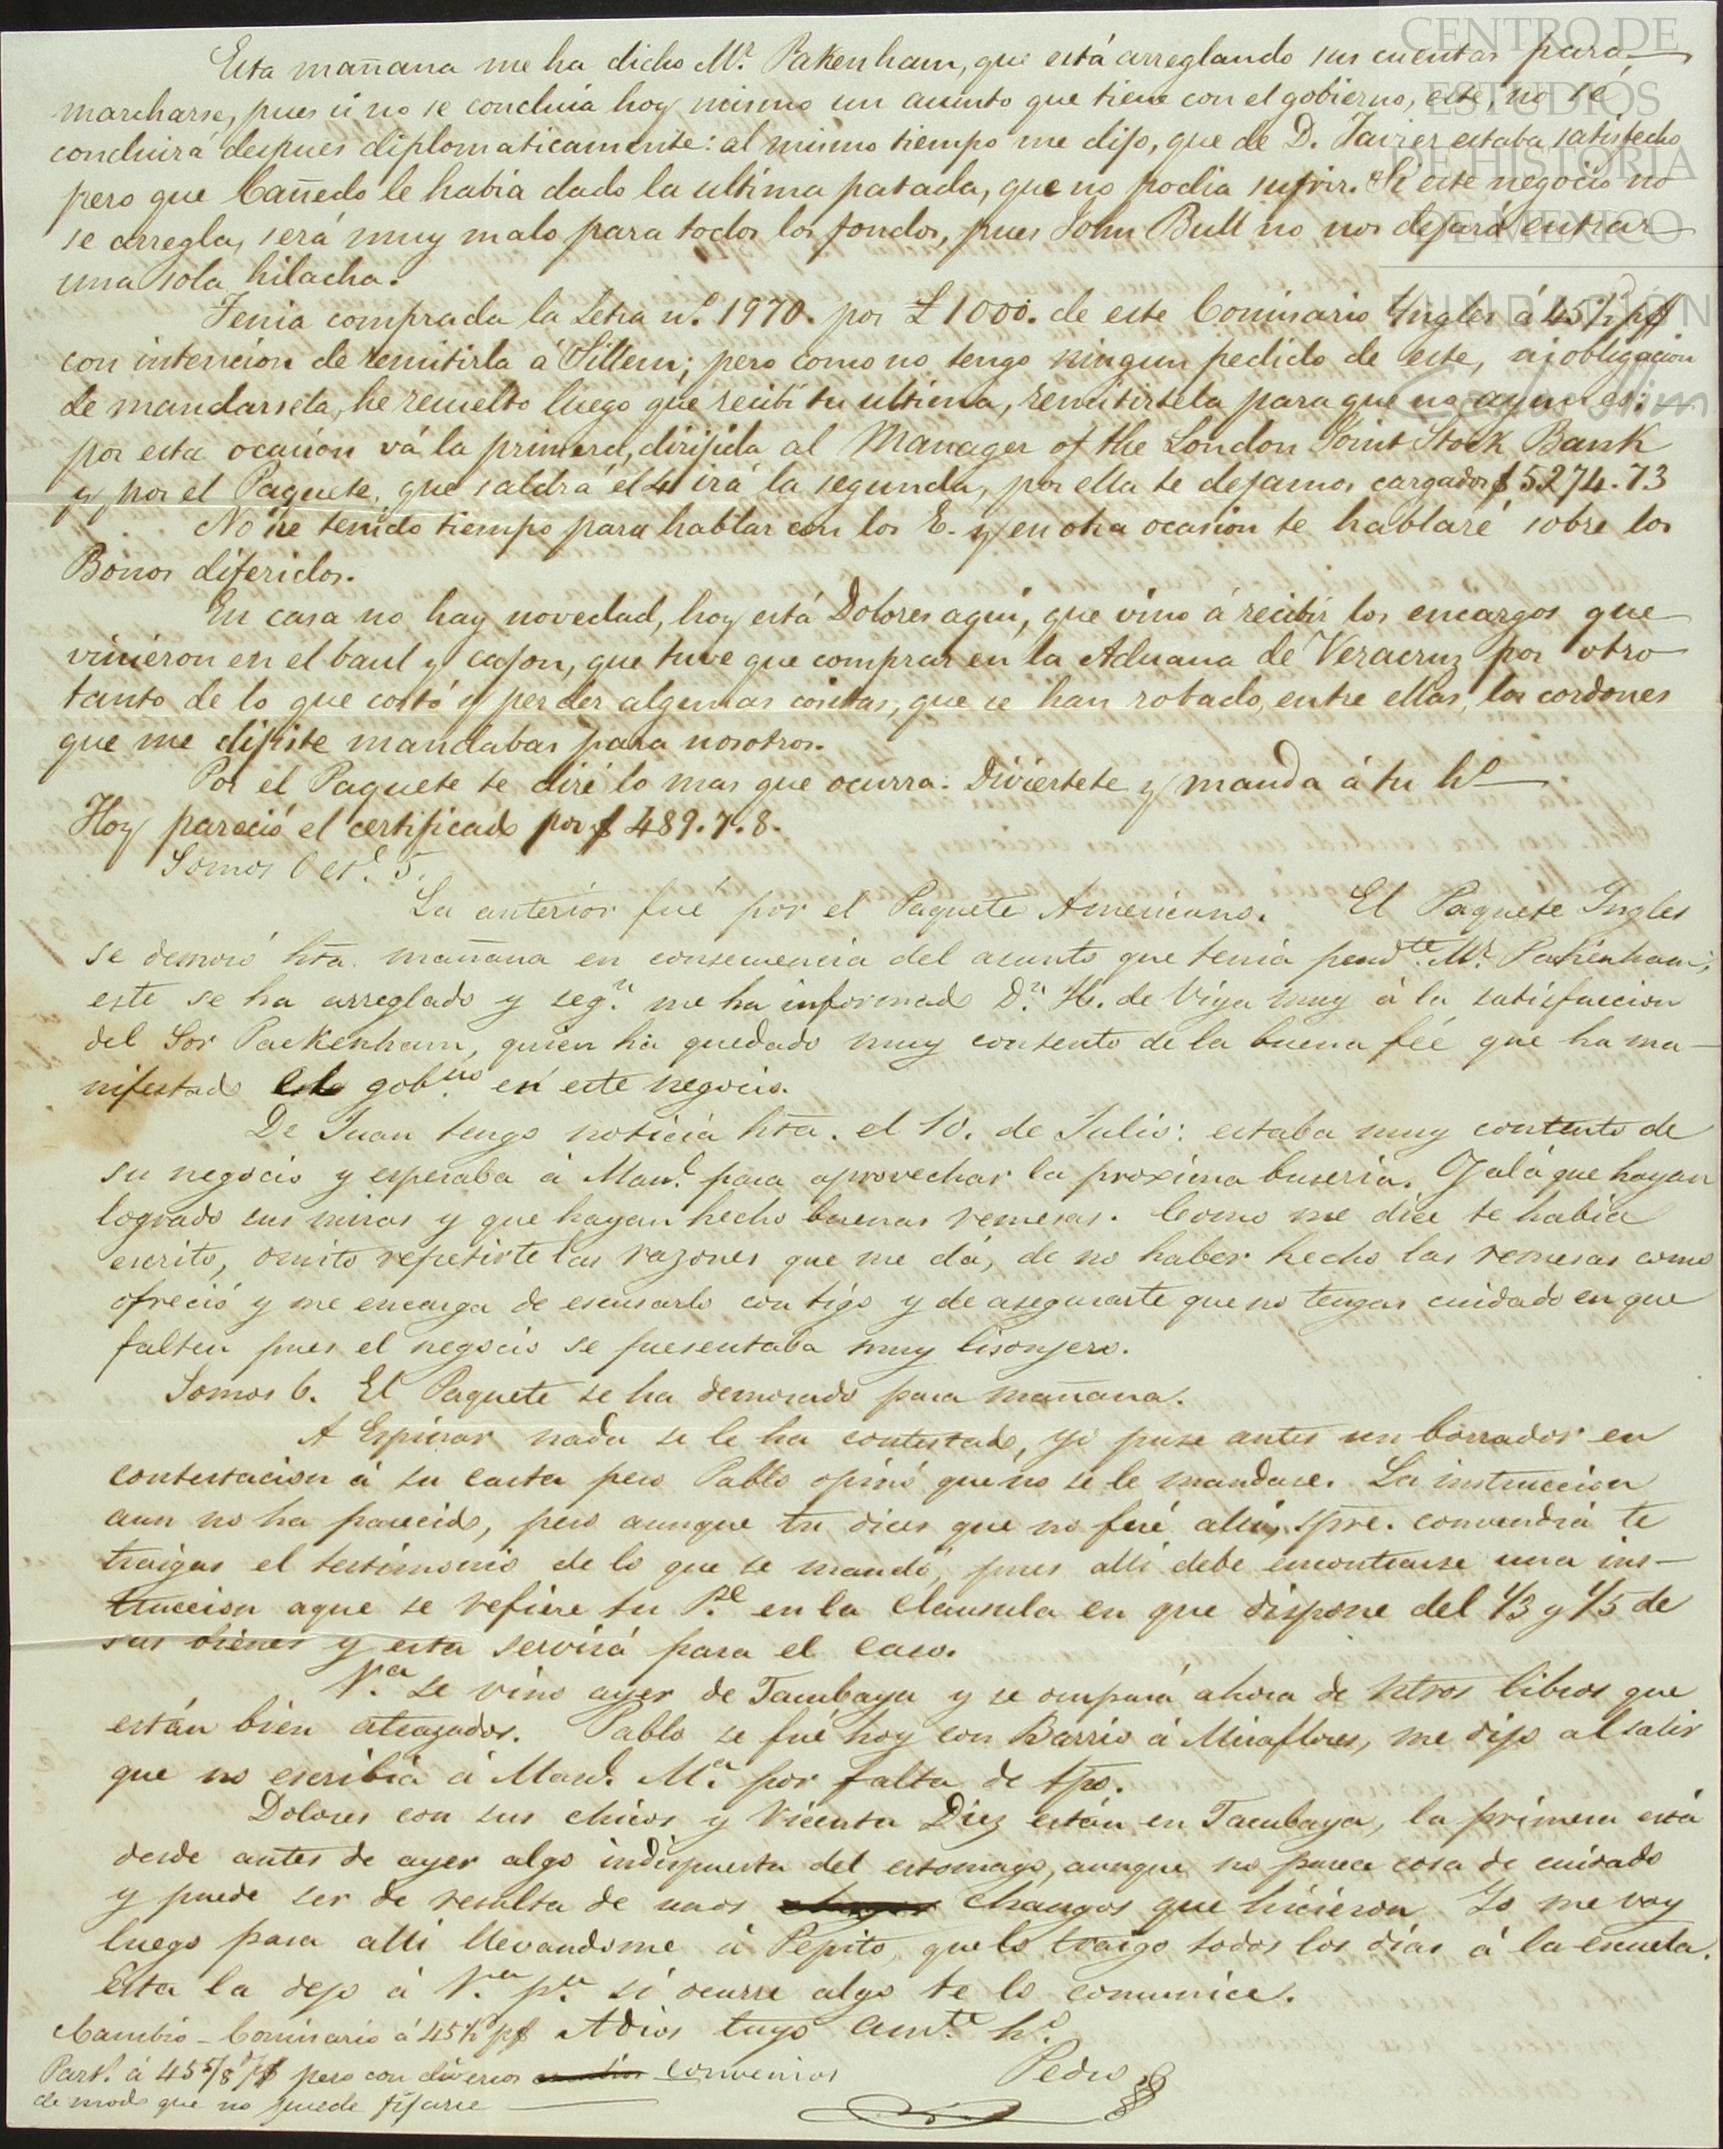 CENTRO DE
ESTUDIOS
DE HISTORIA
DE MEXICO
FUNDACIÓN
Carlos Slim
Esta mañana me ha dicho Mr. Pakenham, que está arreglando sus cuentas para
marcharse, pues si no se concluia hoy mismo un asunto que tiene con el gobierno, este, no se
concluirá despues diplomaticamente: al mismo tiempo me dijo, que de D. Javier estaba satisfecho
pero que Cañedo le habia dado la ultima patada, que no podia sufrir. Si este negocio no
se arregla, será muy malo para todos los fondos, pues John Bull no nos dejará entrar
una sola hilacha.
Tenia comprada la Letra n.º 1970. por £ 1000. de este Comisario Ingles á 45½ p$
con intencion de remitirla á Sillem; pero como no tengo ningun pedido de este, ni obligacion
de mandarsela, he resuelto luego que recibí tu ultima, remitirtela para que no ayunes;
por esta ocasion vá la primera, dirijida al Manager of the London Joint Stock Bank
y por el Paquete, que saldrá el 4 irá la segunda, por ella te dejamos cargados $ 5274.73
No he tenido tiempo para hablar con los E. y en otra ocasion te hablaré sobre los
Bonos diferidos.
En casa no hay novedad, hoy está Dolores aquí, que vino á recibir los encargos que
vinieron en el baul y cajon, que tuve que comprar en la Aduana de Veracruz por otro
tanto de lo que costó y perder algunas cositas, que se han robado, entre ellas, los cordones
que me dijiste mandabas para nosotros.
Por el Paquete te diré lo mas que ocurra. Diviertete y manda á tu hº
Hoy pareció el certificado por $ 489.7.8.
Somos Oct.e 5.
La anterior fué por el Paquete Americano. El Paquete Ingles
se demoró hta. mañana en consecuencia del asunto que tenia pend.te Mr. Pakenham;
este se ha arreglado y seg.n me ha informado D.n H. de Viya muy á la satisfaccion
del Sor Packenham, quien ha quedado muy contento de la buena fée que ha ma-
nifestado este gob.no en este negocio.
De Juan tengo noticia hta. el 10. de Julio: estaba muy contento de
su negocio y esperaba á Man.l para aprovechar la proxima buseria. Ojalá que hayan
logrado sus miras y que hayan hecho buenas remesas. Como me dice te habia
escrito, omito repetirte las razones que me dá, de no haber hecho las remesas como
ofreció y me encarga de escusarlo contigo y de asegurarte que no tengas cuidado en que
falten pues el negocio se presentaba muy lisonjero.
Somos 6. El Paquete se ha demorado para mañana.
A Espinar nada se le ha contestado, yo puse antes un borrador en
contestacion á su carta pero Pablo opinó que no se le mandase. La instruccion
aun no ha parecido, pero aunque tu dices que no fué allá, spre. convendria te
traigas el testimonio de lo que se mandó, pues allí debe encontrarse una ins-
truccion aque se refiere tu P.e en la clausula en que dispone del 1/3 y 1/5 de
sus bienes y esta servirá para el caso.
V.a se vino ayer de Tacubaya y se ocupará ahora de ntros libros que
están bien atrazados. Pablo se fué hoy con Barrio á Miraflores, me dijo al salir
que no escribia á Man.l M.a por falta de tpo.
Dolores con sus chicos y Vicenta Diez están en Tacubaya, la primera está
desde antes de ayer algo indispuesta del estomago, aunque no parece cosa de cuidado
y puede ser de resulta de unos changos que hicieron. Yo me voy
luego para alli llevandome á Pepito, que lo traigo todos los dias á la escuela.
Esta la dejo á V.a p.a si ocurre algo te lo comunice.
Adios tuyo am.te hº.
Pedro
Cambio - Comisario á 45½ p$
Part.l á 45 5/8 p$ pero con diversos convenios
de modo que no puede fijarse